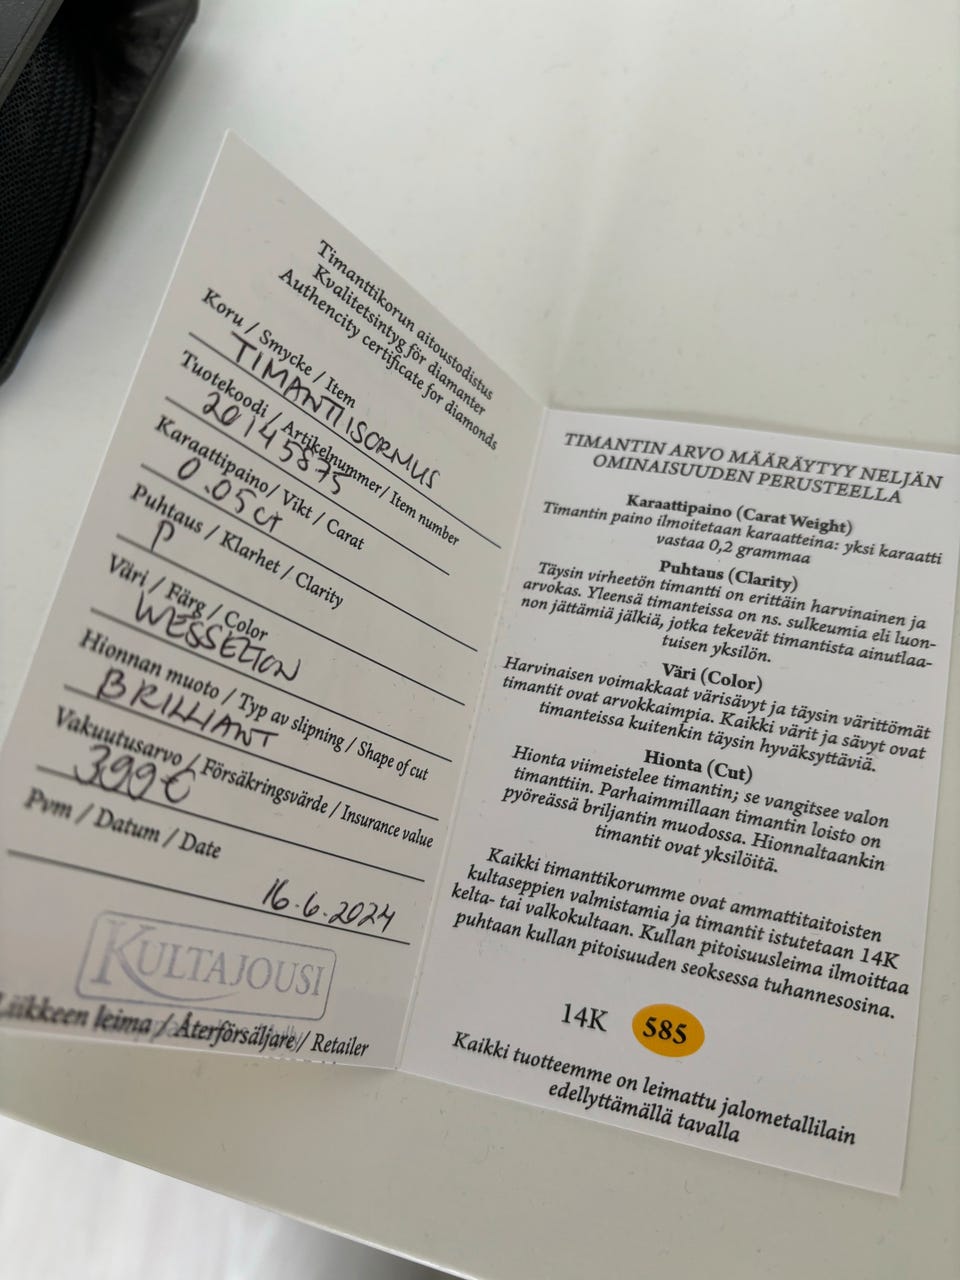 Timanttikorun aitoustodistus
Kvalitetsintyg för diamanter
Authencity certificate for diamonds
Koru / Smycke / Item
TIMANTTISORMUS
Tuotekoodi / Artikelnummer/ Item number
20145873
Karaattipaino/ Vikt / Carat
0.05 ct
Puhtaus / Klarhet / Clarity
P
Väri / Färg / Color
WESSELTON
Hionnan muoto / Typ av slipning / Shape of cut
BRILLIANT
Vakuutusarvo / Försäkringsvärde / Insurance value
399€
Pvm / Datum / Date
16.6.2024
KULTAJOUSI
Liikkeen leima / Återförsäljare/ Retailer
TIMANTIN ARVO MÄÄRÄYTYY NELJÄN
OMINAISUUDEN PERUSTEELLA
Karaattipaino (Carat Weight)
Timantin paino ilmoitetaan karaatteina: yksi karaatti
vastaa 0,2 grammaa
Puhtaus (Clarity)
Täysin virheetön timantti on erittäin harvinainen ja
arvokas. Yleensä timanteissa on ns. sulkeumia eli luon-
non jättämiä jälkiä, jotka tekevät timantista ainutlaa-
tuisen yksilön.
Väri (Color)
Harvinaisen voimakkaat värisävyt ja täysin värittömät
timantit ovat arvokkaimpia. Kaikki värit ja sävyt ovat
timanteissa kuitenkin täysin hyväksyttäviä.
Hionta (Cut)
Hionta viimeistelee timantin; se vangitsee valon
timanttiin. Parhaimmillaan timantin loisto on
pyöreässä briljantin muodossa. Hionnaltaankin
timantit ovat yksilöitä.
Kaikki timanttikorumme ovat ammattitaitoisten
kultaseppien valmistamia ja timantit istutetaan 14K
kelta- tai valkokultaan. Kullan pitoisuusleima ilmoittaa
puhtaan kullan pitoisuuden seoksessa tuhannesosina.
14K 585
Kaikki tuotteemme on leimattu jalometallilain
edellyttämällä tavalla